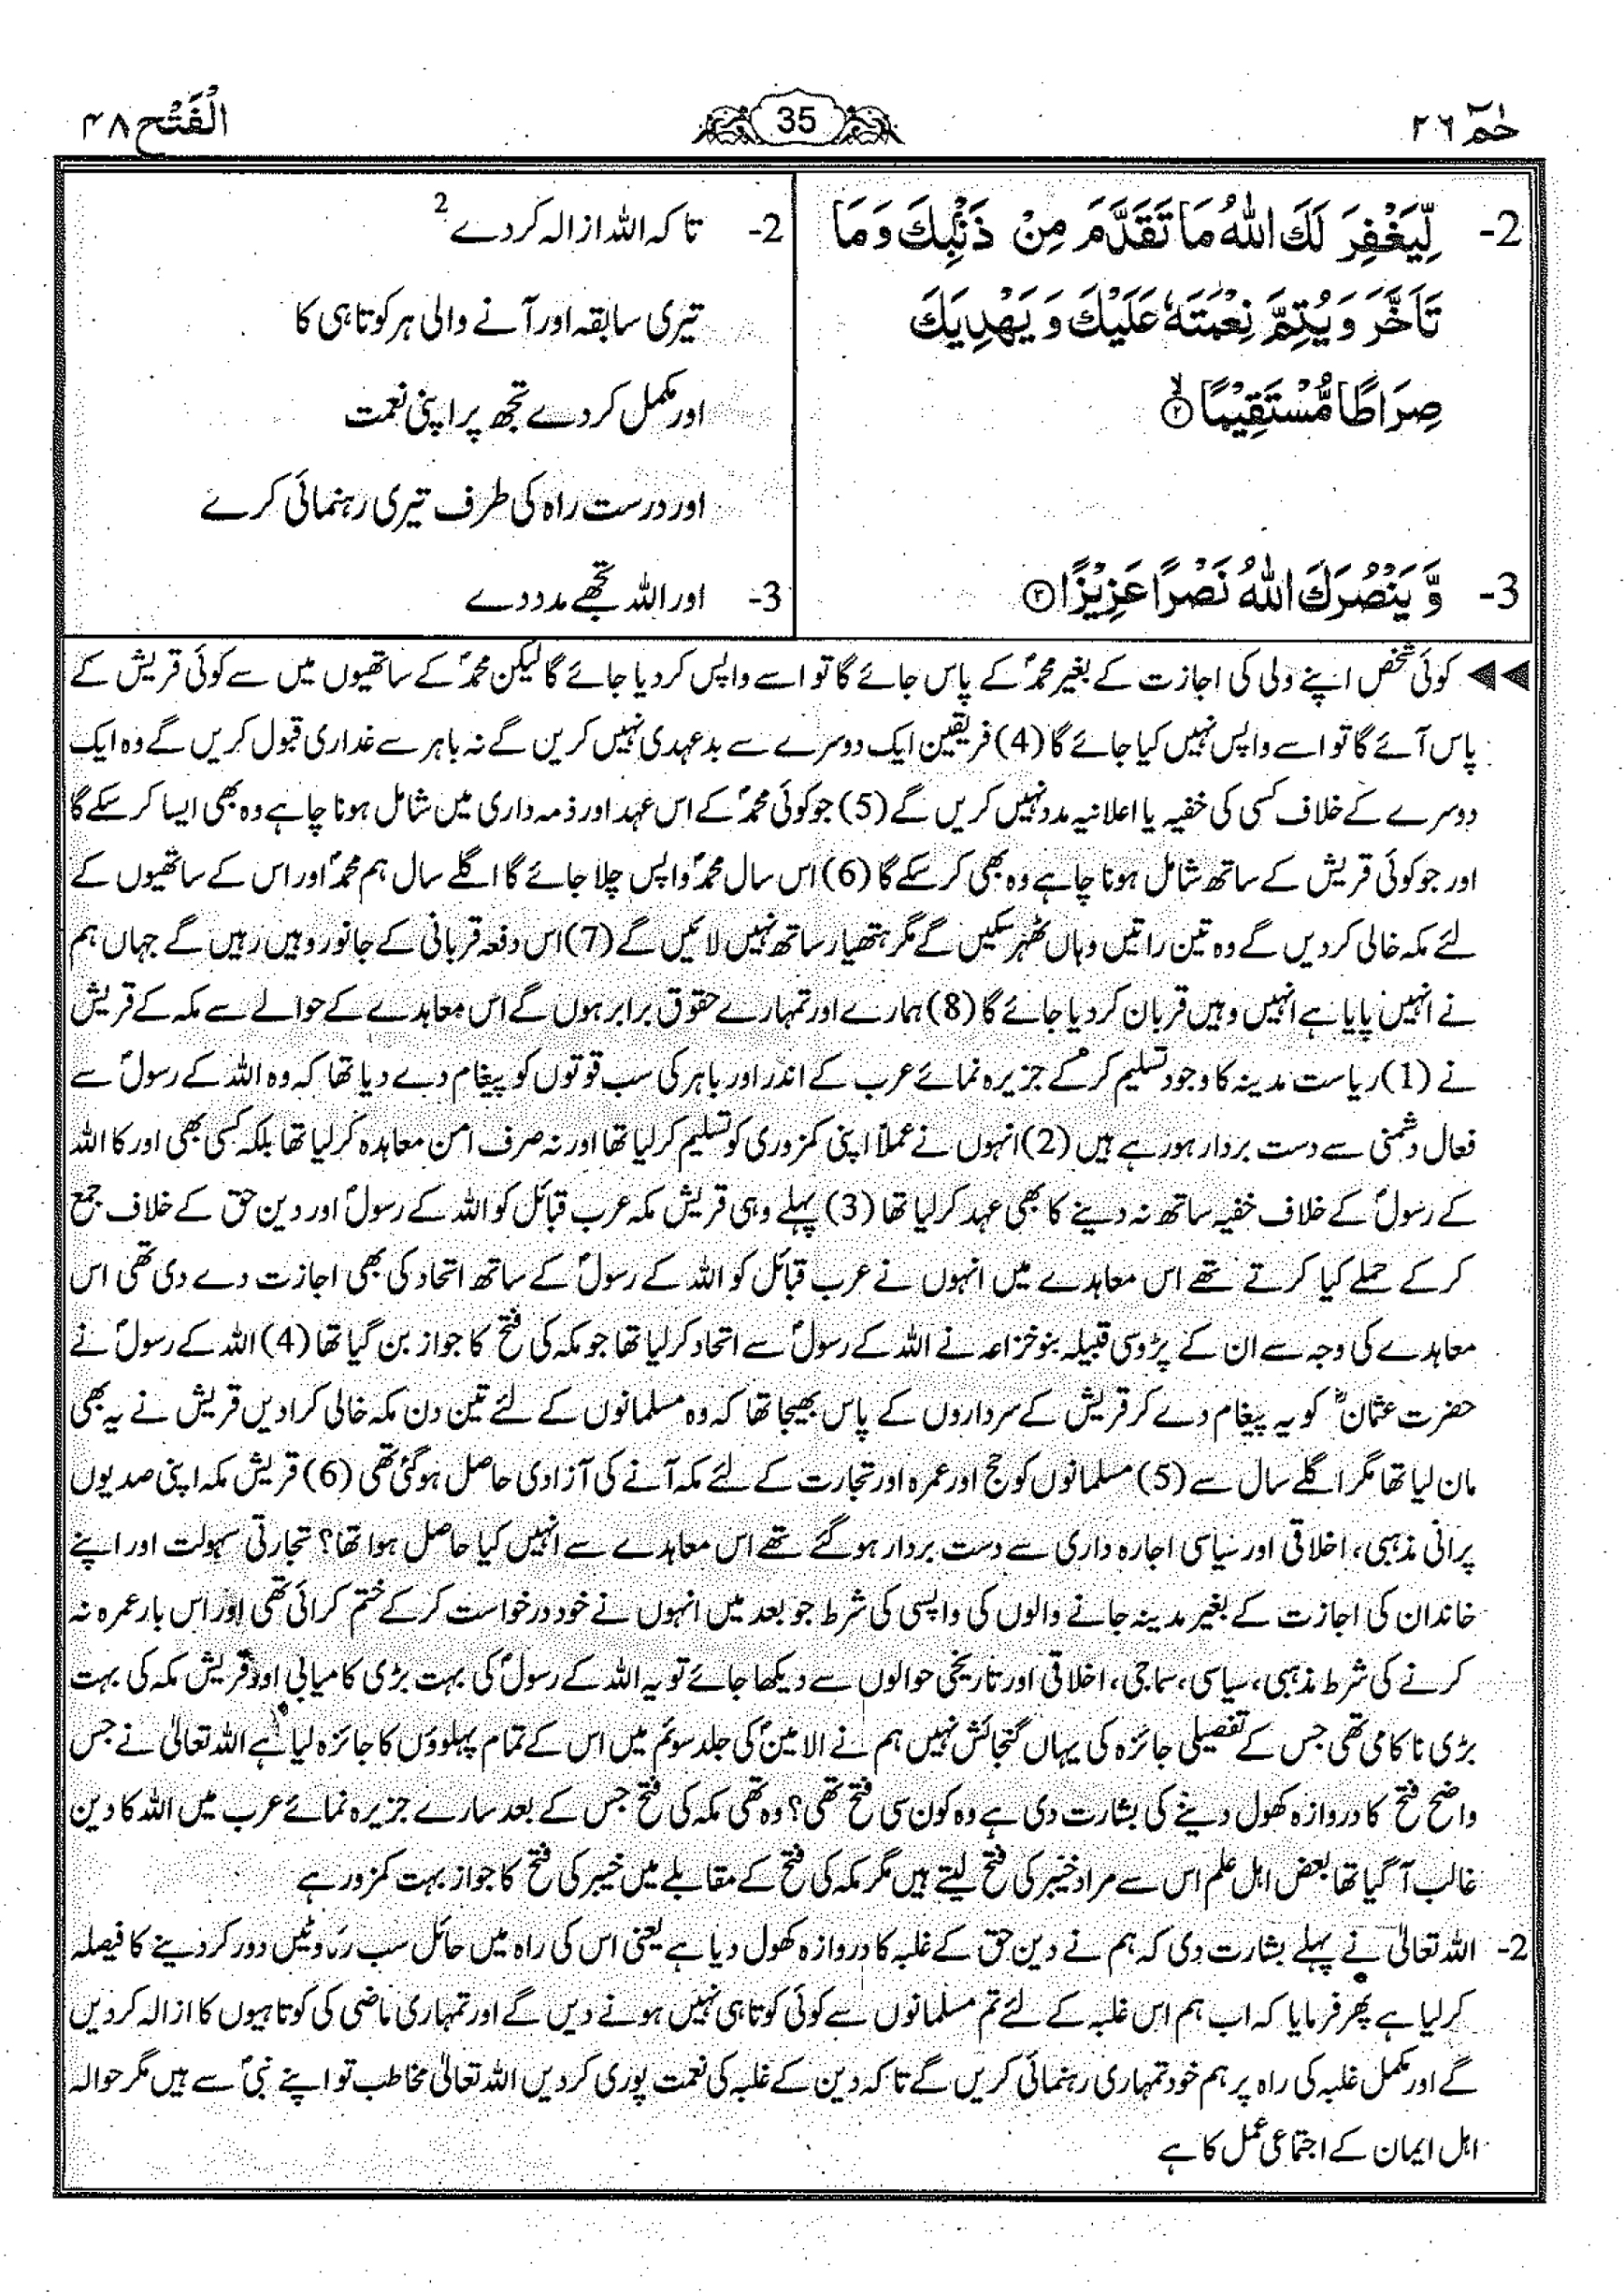 حٰمٓ ٢٦
35
الْفَتْح ٤٨
2- لِّيَغْفِرَ لَكَ اللّٰهُ مَا تَقَدَّمَ مِنْ ذَنْۢبِكَ وَمَا
تَاَخَّرَ وَيُتِمَّ نِعْمَتَهٗ عَلَيْكَ وَيَهْدِيَكَ
صِرَاطًا مُّسْتَقِيْمًا ۙ﴿۲﴾
3- وَّيَنْصُرَكَ اللّٰهُ نَصْرًا عَزِيْزًا ﴿۳﴾
2- تا کہ اللہ ازالہ کر دے 2
تیری سابقہ اور آنے والی ہر کوتاہی کا
اور مکمل کر دے تجھ پر اپنی نعمت
اور درست راہ کی طرف تیری رہنمائی کرے
3- اور اللہ تجھے مدد دے
◀◀ کوئی شخص اپنے ولی کی اجازت کے بغیر محمدؐ کے پاس جائے گا تو اسے واپس کر دیا جائے گا لیکن محمدؐ کے ساتھیوں میں سے کوئی قریش کے
پاس آئے گا تو اسے واپس نہیں کیا جائے گا (4) فریقین ایک دوسرے سے بدعہدی نہیں کریں گے نہ باہر سے غداری قبول کریں گے وہ ایک
دوسرے کے خلاف کسی کی خفیہ یا اعلانیہ مدد نہیں کریں گے (5) جو کوئی محمدؐ کے اس عہد اور ذمہ داری میں شامل ہونا چاہے وہ بھی ایسا کر سکے گا
اور جو کوئی قریش کے ساتھ شامل ہونا چاہے وہ بھی کر سکے گا (6) اس سال محمدؐ واپس چلا جائے گا اگلے سال ہم محمدؐ اور اس کے ساتھیوں کے
لئے مکہ خالی کر دیں گے وہ تین راتیں وہاں ٹھہر سکیں گے مگر ہتھیار ساتھ نہیں لائیں گے (7) اس دفعہ قربانی کے جانور وہیں رہیں گے جہاں ہم
نے انہیں پایا ہے انہیں وہیں قربان کر دیا جائے گا (8) ہمارے اور تمہارے حقوق برابر ہوں گے اس معاہدے کے حوالے سے مکہ کے قریش
نے (1) ریاست مدینہ کا وجود تسلیم کر کے جزیرہ نمائے عرب کے اندر اور باہر کی سب قوتوں کو پیغام دے دیا تھا کہ وہ اللہ کے رسولؐ سے
فعال دشمنی سے دست بردار ہو رہے ہیں (2) انہوں نے عملاً اپنی کمزوری کو تسلیم کر لیا تھا اور نہ صرف امن معاہدہ کر لیا تھا بلکہ کسی بھی اور کا اللہ
کے رسولؐ کے خلاف خفیہ ساتھ نہ دینے کا بھی عہد کر لیا تھا (3) پہلے وہی قریش مکہ عرب قبائل کو اللہ کے رسولؐ اور دین حق کے خلاف جمع
کر کے حملے کیا کرتے تھے اس معاہدے میں انہوں نے عرب قبائل کو اللہ کے رسولؐ کے ساتھ اتحاد کی بھی اجازت دے دی تھی اس
معاہدے کی وجہ سے ان کے پڑوسی قبیلہ بنو خزاعہ نے اللہ کے رسولؐ سے اتحاد کر لیا تھا جو مکہ کی فتح کا جواز بن گیا تھا (4) اللہ کے رسولؐ نے
حضرت عثمانؓ کو یہ پیغام دے کر قریش کے سرداروں کے پاس بھیجا تھا کہ وہ مسلمانوں کے لئے تین دن مکہ خالی کرا دیں قریش نے یہ بھی
مان لیا تھا مگر اگلے سال سے (5) مسلمانوں کو حج اور عمرہ اور تجارت کے لئے مکہ آنے کی آزادی حاصل ہو گئی تھی (6) قریش مکہ اپنی صدیوں
پرانی مذہبی، اخلاقی اور سیاسی اجارہ داری سے دست بردار ہو گئے تھے اس معاہدے سے انہیں کیا حاصل ہوا تھا؟ تجارتی سہولت اور اپنے
خاندان کی اجازت کے بغیر مدینہ جانے والوں کی واپسی کی شرط جو بعد میں انہوں نے خود درخواست کر کے ختم کرائی تھی اور اس بار عمرہ نہ
کرنے کی شرط مذہبی، سیاسی، سماجی، اخلاقی اور تاریخی حوالوں سے دیکھا جائے تو یہ اللہ کے رسولؐ کی بہت بڑی کامیابی اور قریش مکہ کی بہت
بڑی ناکامی تھی جس کے تفصیلی جائزہ کی یہاں گنجائش نہیں ہم نے الامینؐ کی جلد سوئم میں اس کے تمام پہلوؤں کا جائزہ لیا ہے اللہ تعالیٰ نے جس
واضح فتح کا دروازہ کھول دینے کی بشارت دی ہے وہ کون سی فتح تھی؟ وہ تھی مکہ کی فتح جس کے بعد سارے جزیرہ نمائے عرب میں اللہ کا دین
غالب آ گیا تھا بعض اہل علم اس سے مراد خیبر کی فتح لیتے ہیں مگر مکہ کی فتح کے مقابلے میں خیبر کی فتح کا جواز بہت کمزور ہے
2- اللہ تعالیٰ نے پہلے بشارت دی کہ ہم نے دین حق کے غلبہ کا دروازہ کھول دیا ہے یعنی اس کی راہ میں حائل سب رکاوٹیں دور کر دینے کا فیصلہ
کر لیا ہے پھر فرمایا کہ اب ہم اس غلبہ کے لئے تم مسلمانوں سے کوئی کوتاہی نہیں ہونے دیں گے اور تمہاری ماضی کی کوتاہیوں کا ازالہ کر دیں
گے اور مکمل غلبہ کی راہ پر ہم خود تمہاری رہنمائی کریں گے تا کہ دین کے غلبہ کی نعمت پوری کر دیں اللہ تعالیٰ مخاطب تو اپنے نبیؐ سے ہیں مگر حوالہ
اہل ایمان کے اجتماعی عمل کا ہے